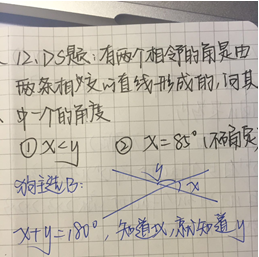 12. DS题:有两个相邻的角是由
两条相交的直线形成的,问其
中一个的角度
① x<y ② x=85°(不确定)
狗主选B:
y
x
x+y=180°,知道x,就知道y